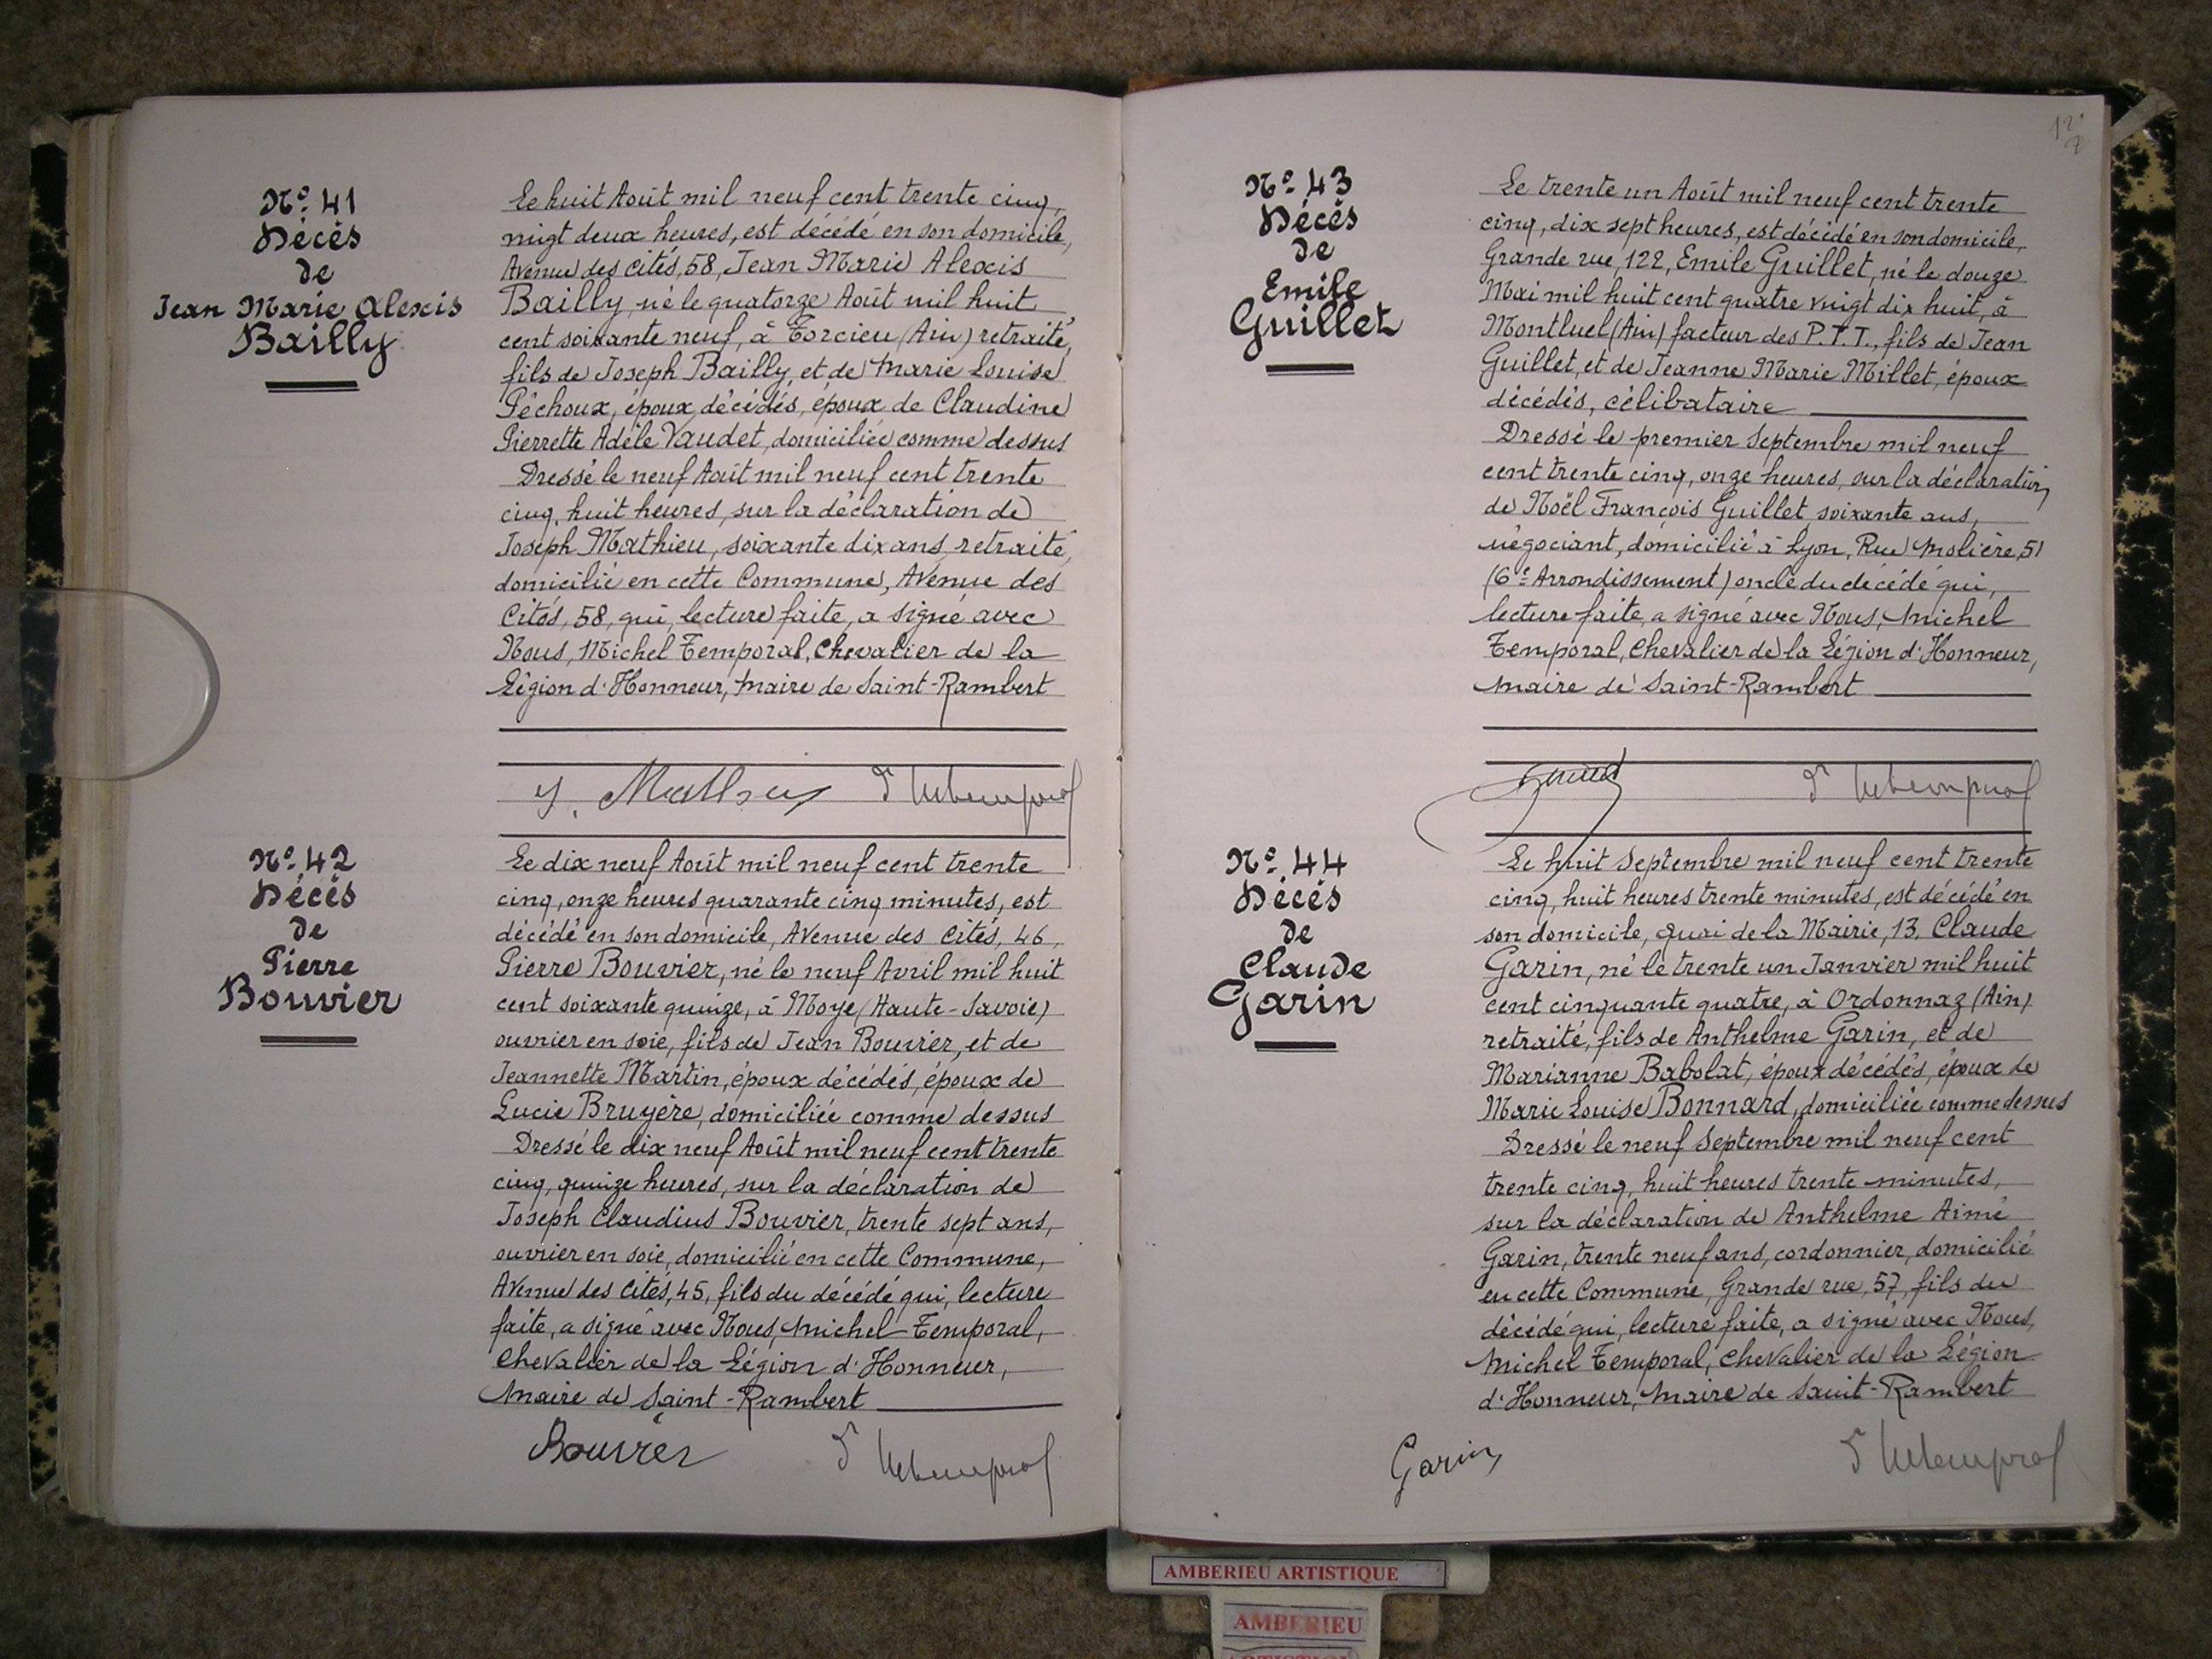 N° 41
Décès
de
Jean Marie Alexis
Bailly
Le huit Août mil neuf cent trente cinq,
vingt deux heures, est décédé en son domicile,
Avenue des Cités, 58, Jean Marie Alexis
Bailly, né le quatorze Août mil huit
cent soixante neuf, à Torcieu (Ain) retraité,
fils de Joseph Bailly, et de Marie Louise
Péchoux, époux décédés, époux de Claudine
Pierrette Adèle Vaudet, domiciliée comme dessus
Dressé le neuf Août mil neuf cent trente
cinq, huit heures, sur la déclaration de
Joseph Mathieu, soixante dix ans, retraité,
domicilié en cette Commune, Avenue des
Cités, 58, qui, lecture faite, a signé avec
Nous, Michel Temporal, Chevalier de la
Légion d'Honneur, Maire de Saint-Rambert
J. Mathieu
N° 42
Décès
de
Pierre
Bouvier
Le dix neuf Août mil neuf cent trente
cinq, onze heures quarante cinq minutes, est
décédé en son domicile, Avenue des Cités, 46,
Pierre Bouvier, né le neuf Avril mil huit
cent soixante quinze, à Moye (Haute-Savoie)
ouvrier en soie, fils de Jean Bouvier, et de
Jeannette Martin, époux décédés, époux de
Lucie Bruyère, domiciliée comme dessus
Dressé le dix neuf Août mil neuf cent trente
cinq, quinze heures, sur la déclaration de
Joseph Claudius Bouvier, trente sept ans,
ouvrier en soie, domicilié en cette Commune,
Avenue des Cités, 45, fils du décédé qui, lecture
faite, a signé avec Nous, Michel Temporal,
Chevalier de la Légion d'Honneur,
Maire de Saint-Rambert
Bouvier
N° 43
Décès
de
Emile
Guillet
Le trente un Août mil neuf cent trente
cinq, dix sept heures, est décédé en son domicile,
Grande rue, 122, Emile Guillet, né le douze
Mai mil huit cent quatre vingt dix huit, à
Montluel (Ain) facteur des P.T.T., fils de Jean
Guillet, et de Jeanne Marie Millet, époux
décédés, célibataire
Dressé le premier Septembre mil neuf
cent trente cinq, onze heures, sur la déclaration
de Noël François Guillet, soixante ans,
négociant, domicilié à Lyon, Rue Molière, 51
(6e Arrondissement) oncle du décédé qui,
lecture faite, a signé avec Nous, Michel
Temporal, Chevalier de la Légion d'Honneur,
Maire de Saint-Rambert
N° 44
Décès
de
Claude
Garin
Le huit Septembre mil neuf cent trente
cinq, huit heures trente minutes, est décédé en
son domicile, quai de la Mairie, 13, Claude
Garin, né le trente un Janvier mil huit
cent cinquante quatre, à Ordonnaz (Ain)
retraité, fils de Anthelme Garin, et de
Marianne Babolat, époux décédés, époux de
Marie Louise Bonnard, domiciliée comme dessus
Dressé le neuf Septembre mil neuf cent
trente cinq, huit heures trente minutes,
sur la déclaration de Anthelme Aimé
Garin, trente neuf ans, cordonnier, domicilié
en cette Commune, Grande rue, 57, fils du
décédé qui, lecture faite, a signé avec Nous,
Michel Temporal, Chevalier de la Légion
d'Honneur, Maire de Saint-Rambert
Garin
AMBERIEU ARTISTIQUE
AMBERIEU
ARTISTIQUE